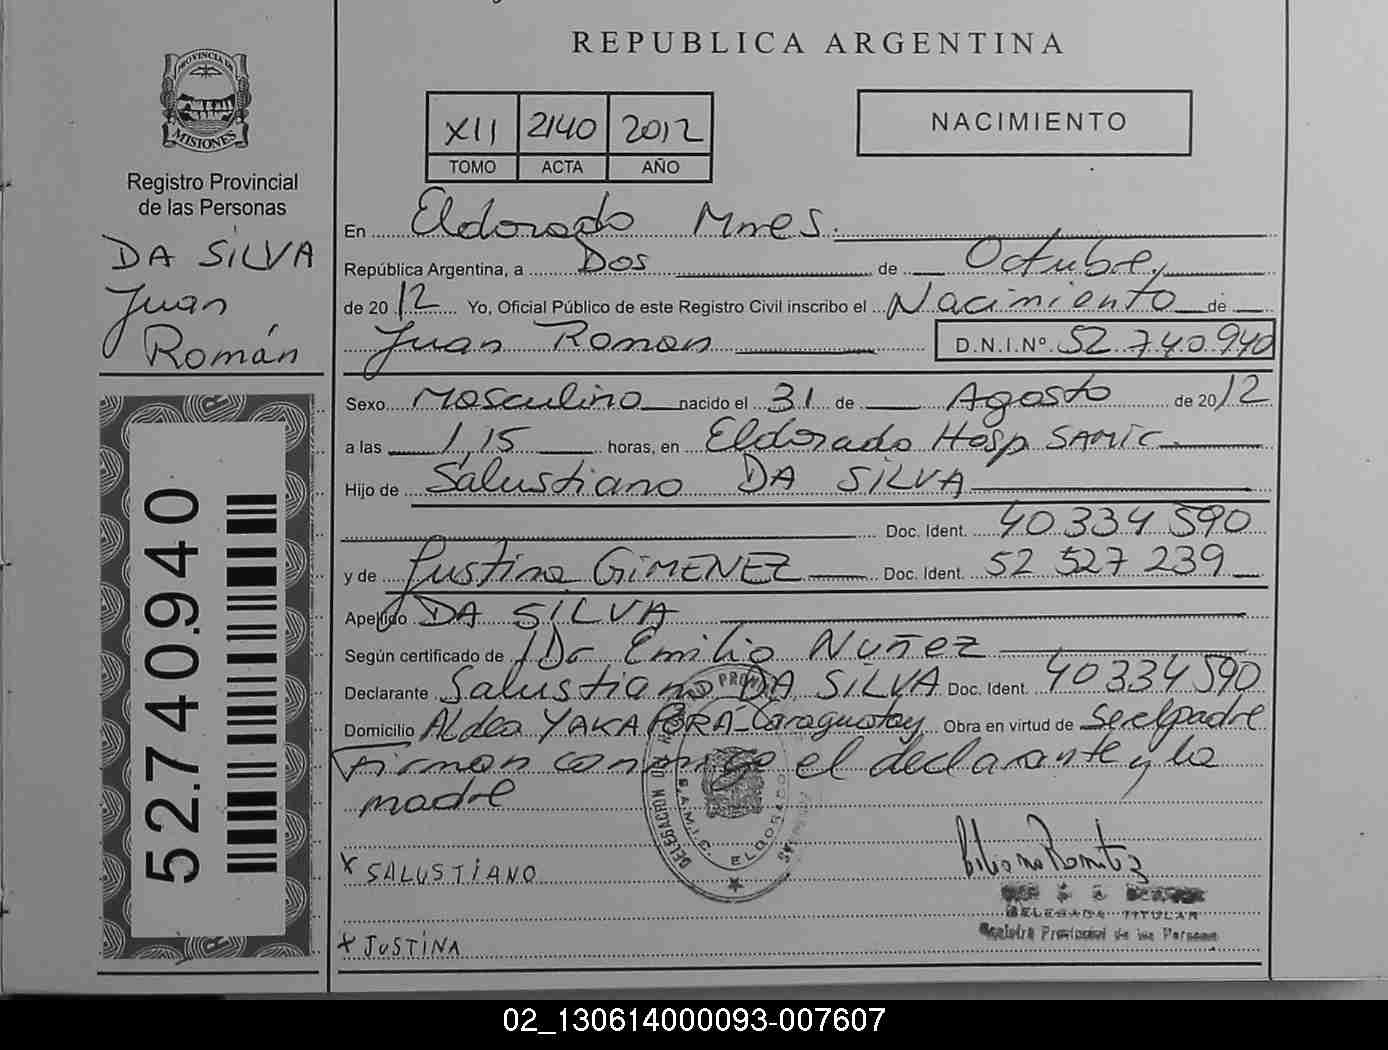 REPUBLICA ARGENTINA
PROVINCIA DE
MISIONES
Registro Provincial
de las Personas
DA SILVA
Juan
Román
52.740.940
XII 2140 2012
TOMO ACTA AÑO
NACIMIENTO
En Eldorado Mnes.
República Argentina, a Dos de Octubre,
de 2012 Yo, Oficial Público de este Registro Civil inscribo el Nacimiento de
Juan Roman D.N.I.Nº 52.740.940
Sexo Masculino nacido el 31 de Agosto de 2012
a las 1,15 horas, en Eldorado Hosp SAMIC.
Hijo de Salustiano DA SILVA
Doc. Ident. 40334590
y de Justina GIMENEZ Doc. Ident. 52 527 239
Apellido DA SILVA
Según certificado de Emilio Nuñez
Declarante Salustiano DA SILVA Doc. Ident. 40334590
Domicilio Aldea YAKA PORA-Caraguatay Obra en virtud de Ser el padre
Firman conmigo el declarante y la
madre
S.A.M.I.C. ELDORADO
x SALUSTIANO
x JUSTINA
DELEGADA TITULAR
Registro Provincial de las Personas
02_130614000093-007607